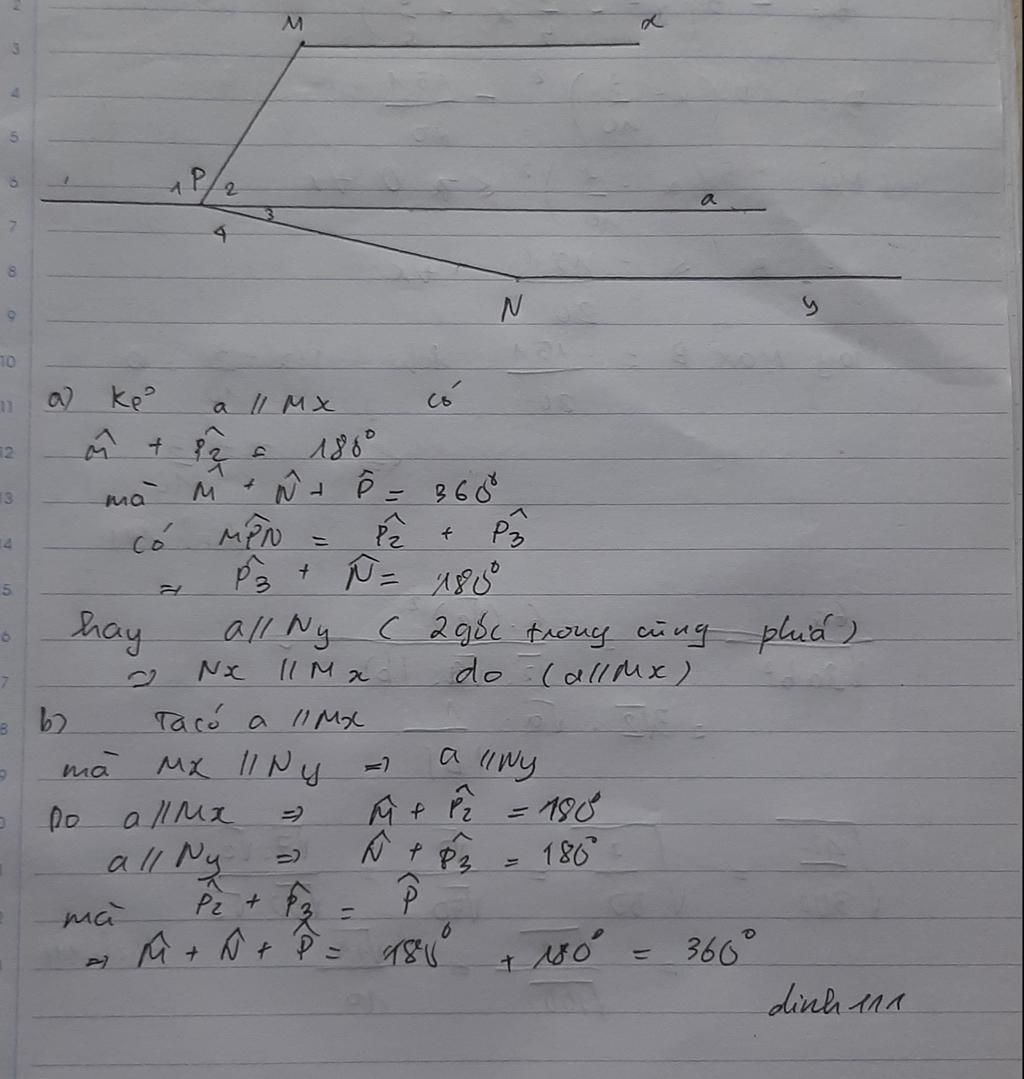 M x
1 P 2 a
3
4
N y
a) Kẻ a // Mx có
M̂ + P̂2 = 180°
mà M̂ + N̂ + P̂ = 360°
có MP̂N = P̂2 + P̂3
⇒ P̂3 + N̂ = 180°
hay a // Ny ( 2 góc trong cùng phía )
⇒ Nx // Mx do ( a // Mx )
b) Ta có a // Mx
mà Mx // Ny ⇒ a // Ny
Do a // Mx ⇒ M̂ + P̂2 = 180°
a // Ny ⇒ N̂ + P̂3 = 180°
mà P̂2 + P̂3 = P̂
⇒ M̂ + N̂ + P̂ = 180° + 180° = 360°
dinh 111